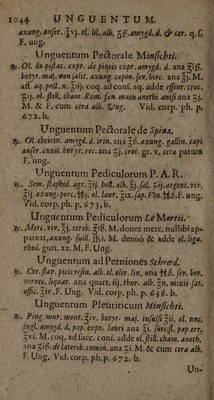 1044 UNGUENTUM.
axung. anser. ʒvj. ol. lil. alb. ℥ß. amygd. d. & cer. q. ſ.
F. ung.
Unguentum Pectorale Minſichti.
℞. Ol. de piſtac. expr. de pipeis expr. amygd. d. ana ʒiß,
butyr. maj. non ſalit. axung. capon. ſev. hirc. ana ʒj. M.
aff. aq. pect. n. ʒiij. coq. ad conſ. aq. adde eſſent. croc.
ʒij. ol. ſtill. cham. Rom. fœn. macu anethi aniſi ana ʒj.
M. & F. cum cera alb. Ung. Vid. corp. ph. p.
672. b.
Unguentum Pectorale de Spina.
℞. Ol. cheirin. amygd. d. irin. ana ℥ß. axung. gallin. capi
anſer. cunic. butyr. rec. ana ʒj. croc. gr. v. cera parum
F. ung.
Unguentum Pediculorum P. A. R.
℞. Sem. ſtaphid. agr. ʒij. hell. alb. ʒj. ſal. ʒij. argent. viv.
ʒij. axung. porc. ℔j. ol. laur. ℥ix. ſap. Ven. ℔ß. F. ung.
Vid. corp. ph. p. 673. b.
Unguentum Pediculorum Le Mortii.
℞. Merc. viv. ʒj. tereb. ʒiß. M. donec merc. nullibi ap-
pareat, axung. ſuill. ℔j. M. denuo & adde ol. ligu.
rhod. gutt. xx. M. F. Ung.
Unguentum ad Perniones Schrœd.
℞. Cer. flav. picis reſin. alb. ol. oliv. lin. ana ℔ß. ſev. bov.
vervec. liquat. ana quart. iij. thur. alb. ℥ix. minii ſat.
offic. ℥iv. F. Ung. Vid. corp. ph. p. 638. b.
Unguentum Pleuriticum Minſichti.
℞. Ping. mur. mont. ℥iv. butyr. maj. inſulſi ℥ii. ol. nuc.
jugl. amygd. d. pap. expr. lauri ana ℥j. ſucc. ſt. pap. err.
℥vi. M. coq. ad ſucc. conſ. adde ol. ſtill. cham. aneth.
ana ʒiß. de laterib. cumin. ana ʒj. M. & cum cera alb.
F. Ung. Vid. corp. ph. p. 672. b.
Un-